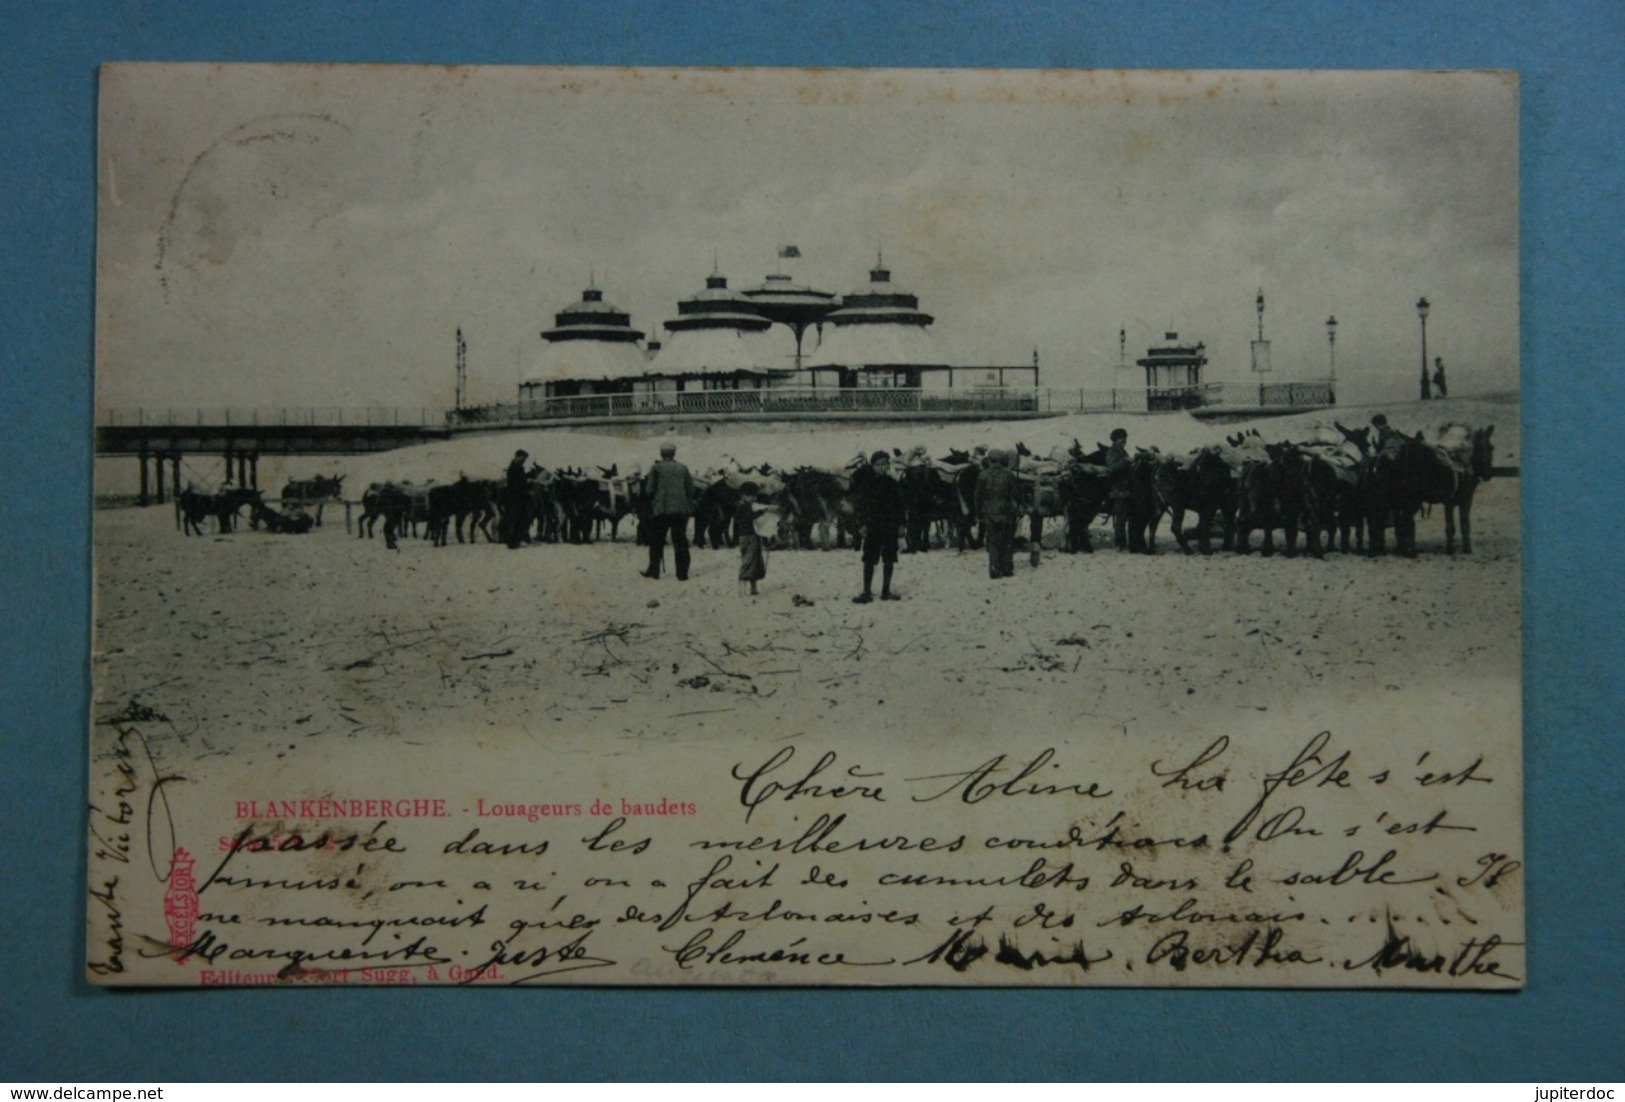 BLANKENBERGHE. - Louageurs de baudets
EXCELSIOR
Editeur Albert Sugg, à Gand.
Chère Aline La fête s'est
passée dans les meilleures conditions. On s'est
amusé, on a ri, on a fait des cumulets dans le sable. Il
ne manquait que des Arlonaises et des Arlonais......
Marguerite. Juste Clémence Marie. Bertha. Marthe
tante Victorine
www.delcampe.net
jupiterdoc